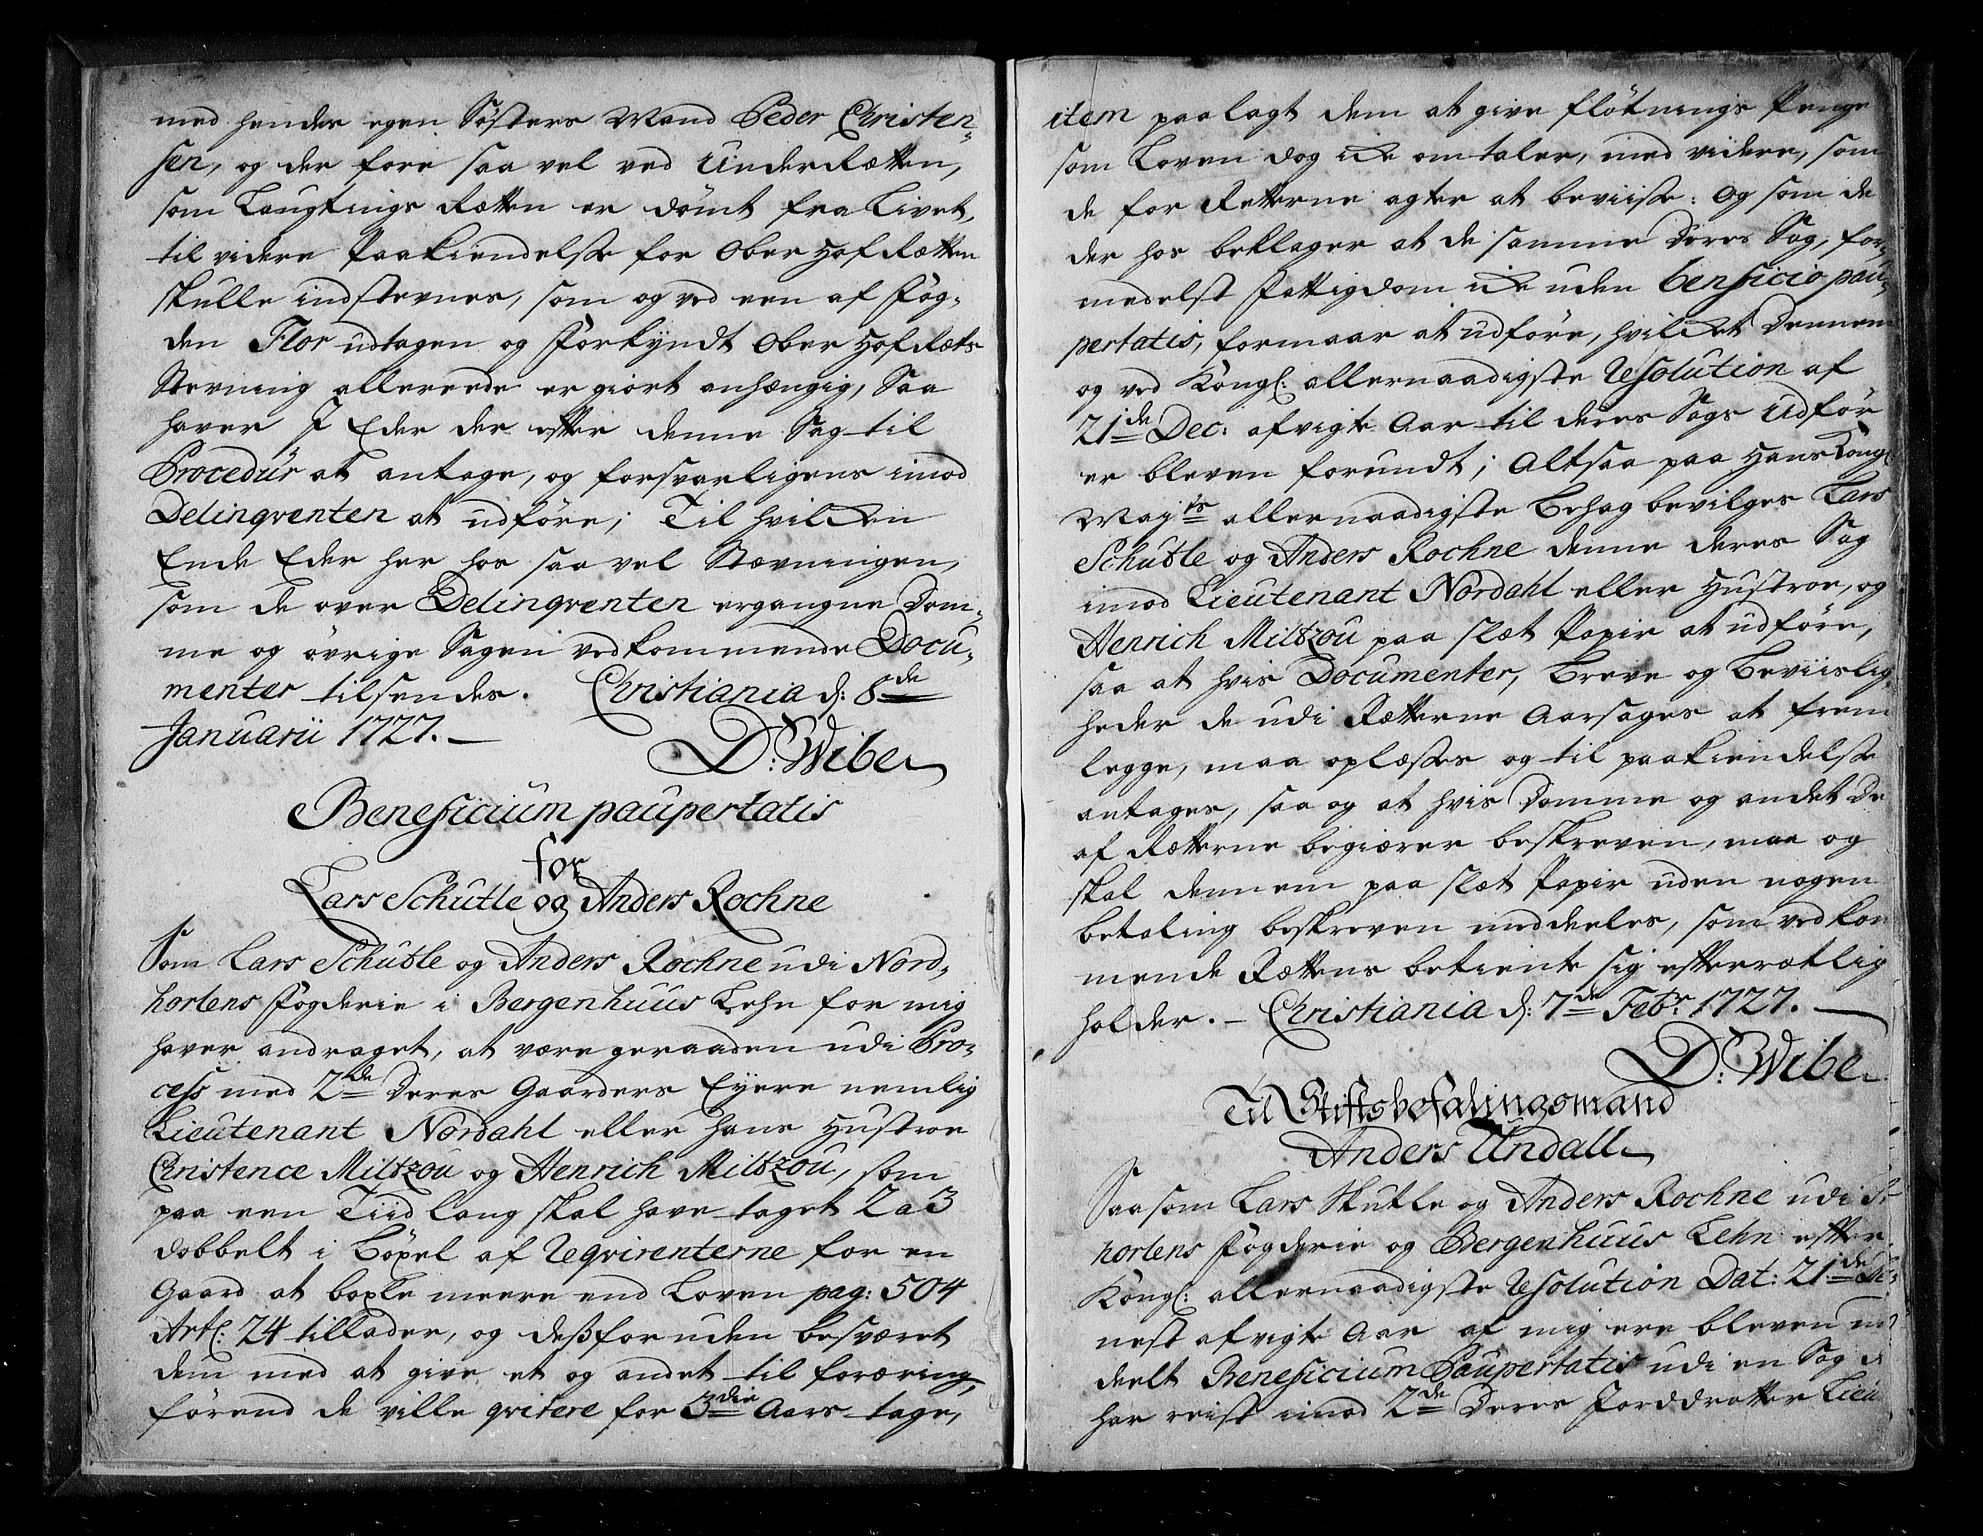 med hendes egen Søsters Mand Peder Christen-
sen, og der fore saa vel ved UnderRætten,
som Laugtings Rætten er dømt fra Livet,
til videre Paakiendelse for Ober Hof Rætten
skulle indstevnes, som og ved een af Fog-
den Flor udtagen og Forkyndt Ober Hof Ræts
Stevning allereede er giort anhængig, Saa
haver I Eder der efter denne Sag til
Procedur at antage, og forsvarligens imod
Delinqventen at udføre; Til hvilcken
Ende Eder her hos saa vel Stævningen,
som de over Delinqventen ergangne Dom-
me og øvrige Sagen vedkommende Docu-
menter tilsendes. Christiania d: 8de
Januarii 1727.
D: Wibe
Beneficium paupertatis
for
Lars Schutle og Anders Rochne
Som Lars Schutle og Anders Rochne udi Nord-
hortens Fogderie i Bergenhuus Lehn for mig
haver andraget, at være geraaden udi Pro-
cess med 2de Deres Gaarders Eyere nemlig
Lieutenant Nordahl eller hans Hustroe
Christence Miltzou og Henrich Miltzou, som
paa een Tiid lang skal have taget 2 a 3
dobbelt i Böxel af Reqvirenterne for en
Gaard at böxle meere end Loven pag: 504
Artl: 24 tillader, og dessforuden besværet
dem med at give et og andet til foræring,
førend de ville qvitere for 3die Aars tage,
item paalagt dem at give fløtnings Penge
som Loven dog icke omtaler, med videre, som
de for Retterne agter at beviise: Og som de
der hos beklager at de samme Deres Sag, for-
medelst Fattigdom icke uden benficio pau-
pertatis, formaar at udføre, hvilcket Dennem
og ved Kongl: allernaadigste Resolution af
21de Dec: afvigte Aar til deres Sags Udför
er bleven forundt; Altsaa paa Hans Kongl
Mayts allernaadigste Behag bevilges Lars
Schutle og Anders Rochne denne deres Sag
imod Lieutenant Nordahl eller Hustroe, og
Henrich Miltzou paa slæt Papir at udføre,
saa at hvis Documenter, Breve og Beviislig-
heder de udi Rætterne Aarsages at frem
legge, maa oplæsses og til paakiendelse
antages, saa og at hvis Domme og andet De
af Rætterne begiærer beskreven, maa og
skal dennem paa slæt Papir uden nogen
betaling beskreven meddeeles, som vedkom
mende Rættens betiente sig efterrætlig
holder. Christiania d: 7de Febr: 1727.
D: Wibe
Til Stiftsbefalingsmand
Anders Undall
Saasom Lars Skutle og Anders Rochne udi
hortens Fogderie og Bergenhuus Lehn efter
Kongl: allernaadigste Resolution Dat: 21de De-
nest afvigte Aar af mig ere bleven m
deelt Beneficium Paupertatis udi en Sag d
har reist imod 2de Deres Jorddrotter Lieu